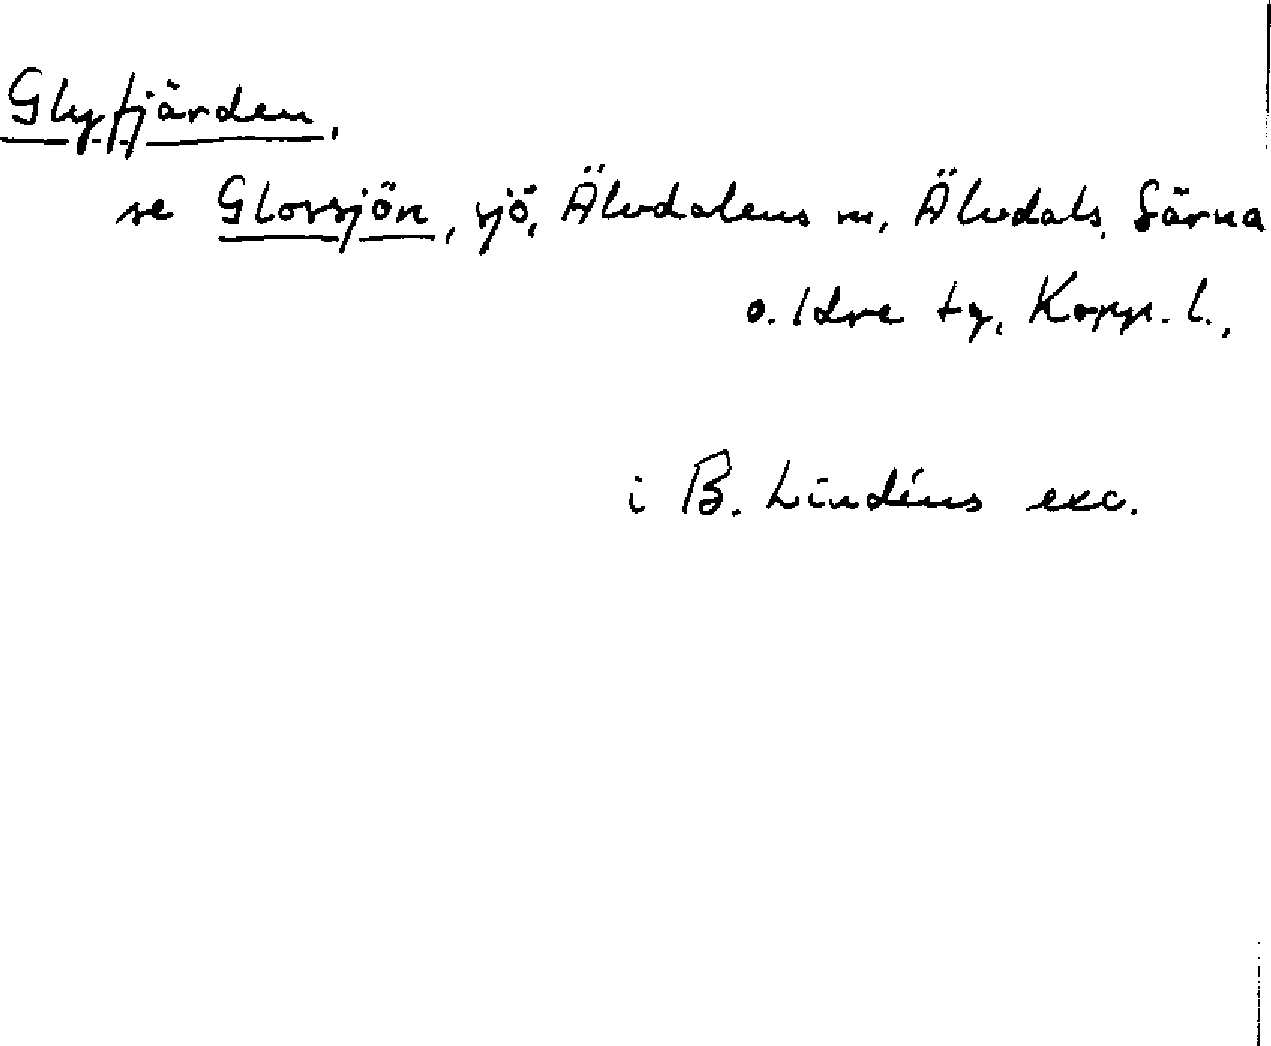 Glyfjärden,
se Glossjön, sjö, Älvdalens m, Älvdals, Särna
o. Idre tg, Kopp. l.,
i B. Lindéns exc.